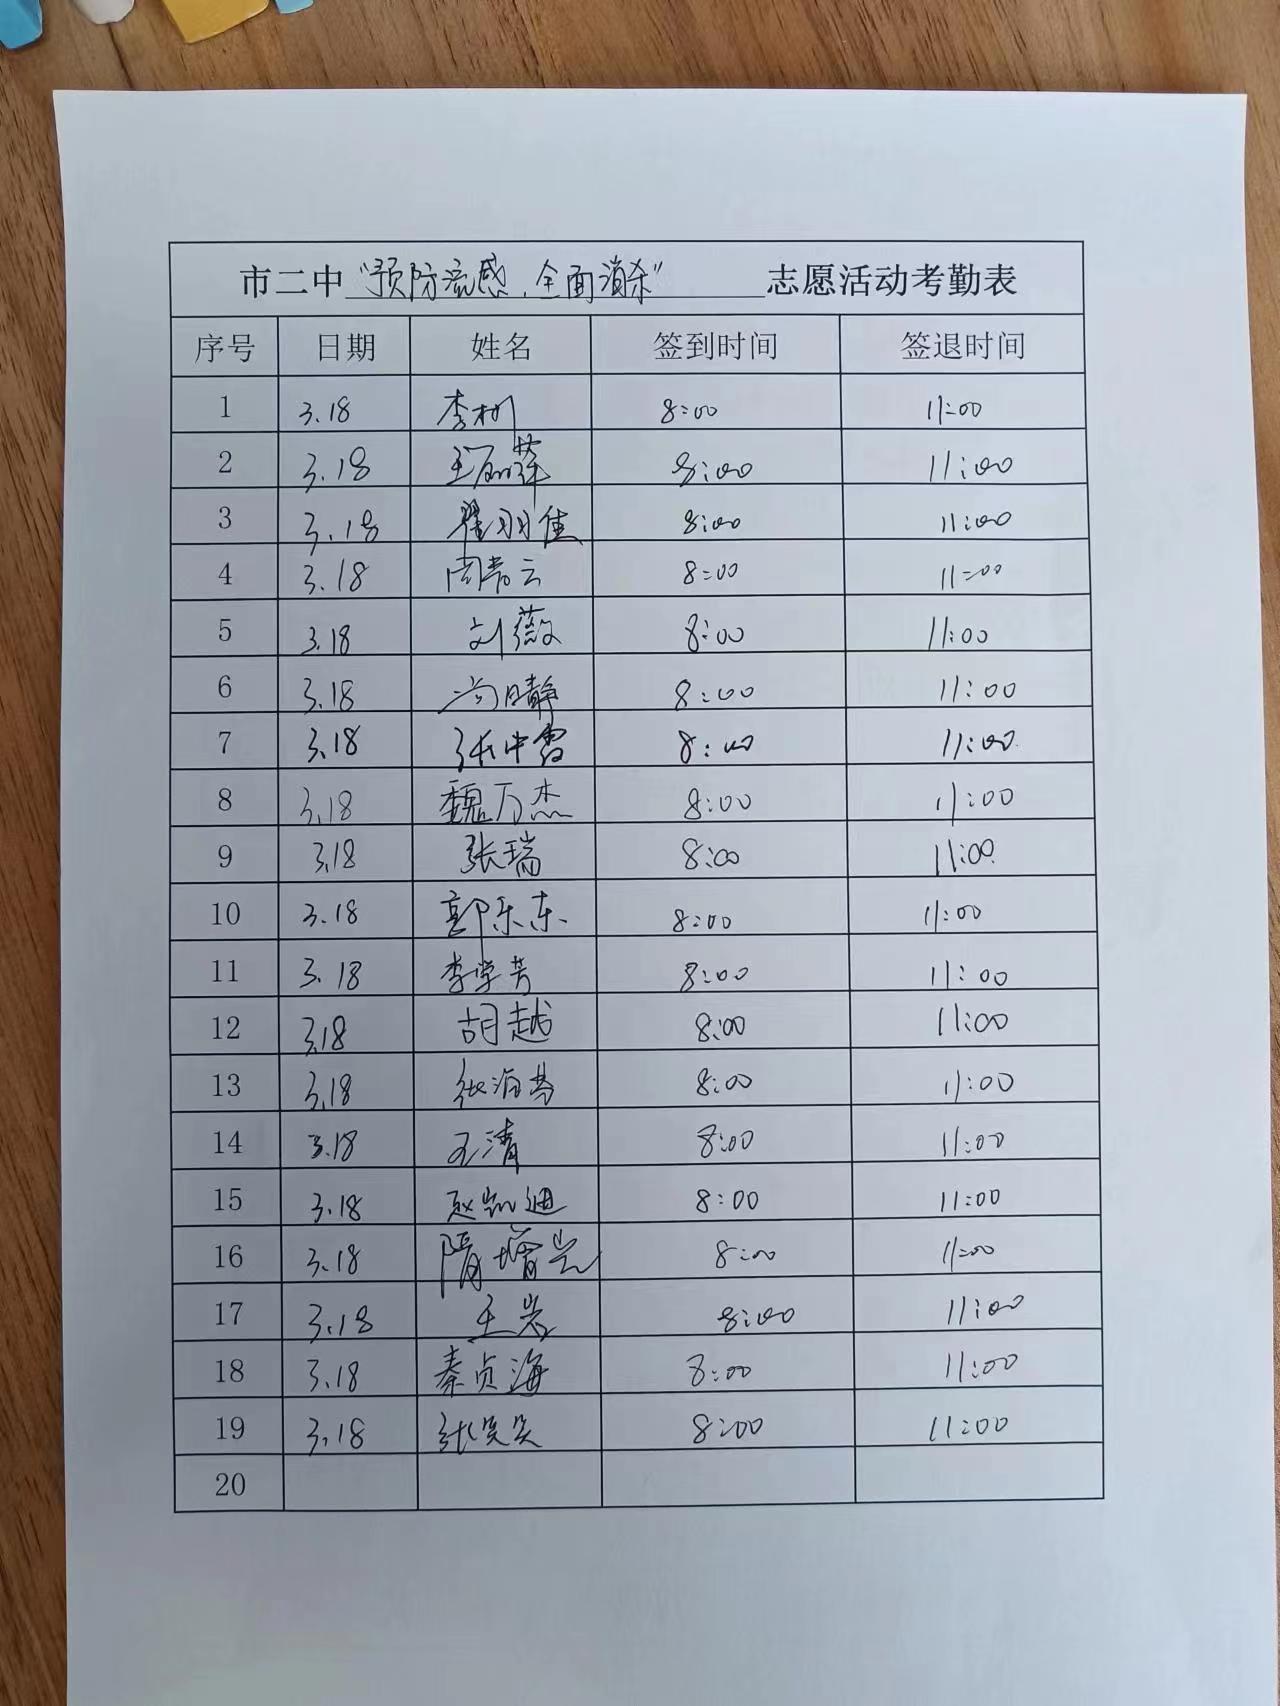 市二中“预防流感,全面消杀”志愿活动考勤表
序号 日期 姓名 签到时间 签退时间
1 3.18 李树 8:00 11:00
2 3.18 王丽萍 8:00 11:00
3 3.18 翟羽佳 8:00 11:00
4 3.18 周青云 8:00 11:00
5 3.18 刘薇 8:00 11:00
6 3.18 尚晴静 8:00 11:00
7 3.18 张中雷 8:00 11:00
8 3.18 魏万杰 8:00 11:00
9 3.18 张瑞 8:00 11:00
10 3.18 郭乐东 8:00 11:00
11 3.18 李学芳 8:00 11:00
12 3.18 胡越 8:00 11:00
13 3.18 张 8:00 11:00
14 3.18 王清 8:00 11:00
15 3.18 赵凯迪 8:00 11:00
16 3.18 隋增光 8:00 11:00
17 3.18 王岩 8:00 11:00
18 3.18 秦贞海 8:00 11:00
19 3.18 张笑笑 8:00 11:00
20